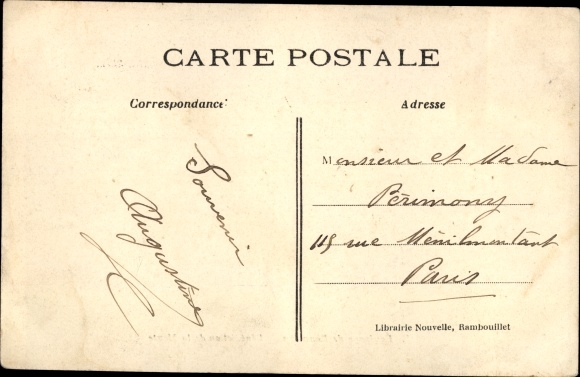 CARTE POSTALE
Correspondance
Adresse
Souvenir
Augustine
Monsieur et Madame
Périmony
115 rue Ménilmontant
Paris
Librairie Nouvelle, Rambouillet